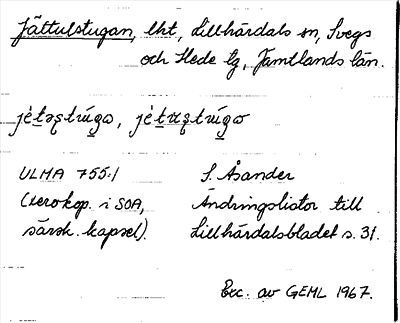 Jättulstugan, lht, Lillhärdals sn, Svegs
och Hede tg, Jämtlands län.
jétəʂtúgɷ, jétɷʂtúgɷ
ULMA 755:1 S. Åsander
(xerokop. i SOA, Ändringslistor till
särsk. kapsel). Lillhärdalsbladet s. 31.
Exc. av GEML 1967.